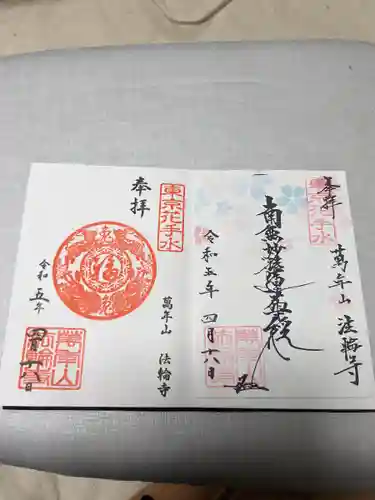 奉拝
東京花手水
萬年山
法輪寺
南無妙法蓮華経
令和五年
四月十六日
東京花手水
奉拝
福
萬年山
法輪寺
令和
五年
十八日